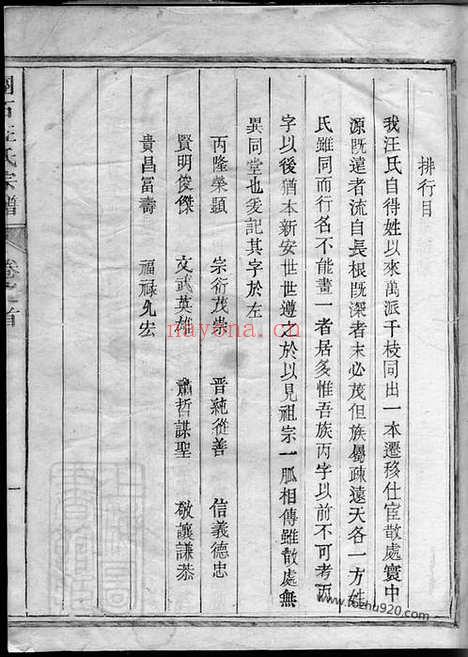 排行目
我汪氏自得姓以來萬派千枝同出一本遷移仕宦散處寰中
源既遠者流自長根既深者末必茂但族屬疎遠天各一方姓
氏雖同而行名不能畫一者居多惟吾族丙字以前不可考丙
字以後猶本新安世世遵之於以見祖宗一脈相傳雖散處無
異同堂也爰記其字於左
丙隆榮顯 宗衍茂崇 晋純從善 信義德忠
賢明俊傑 文武英雄 肅哲謀聖 敬讓謙恭
貴昌富壽 福祿允宏
石汪氏宗譜 卷之首 一
nayona.cn
www.fozhu920.com